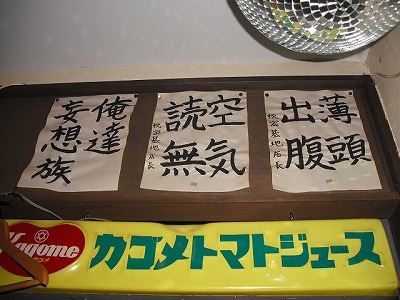 薄頭
出腹
秘密基地店長
空気
読無
秘密基地店長
俺達
妄想族
Kagome
カゴメ
カゴメトマトジュース